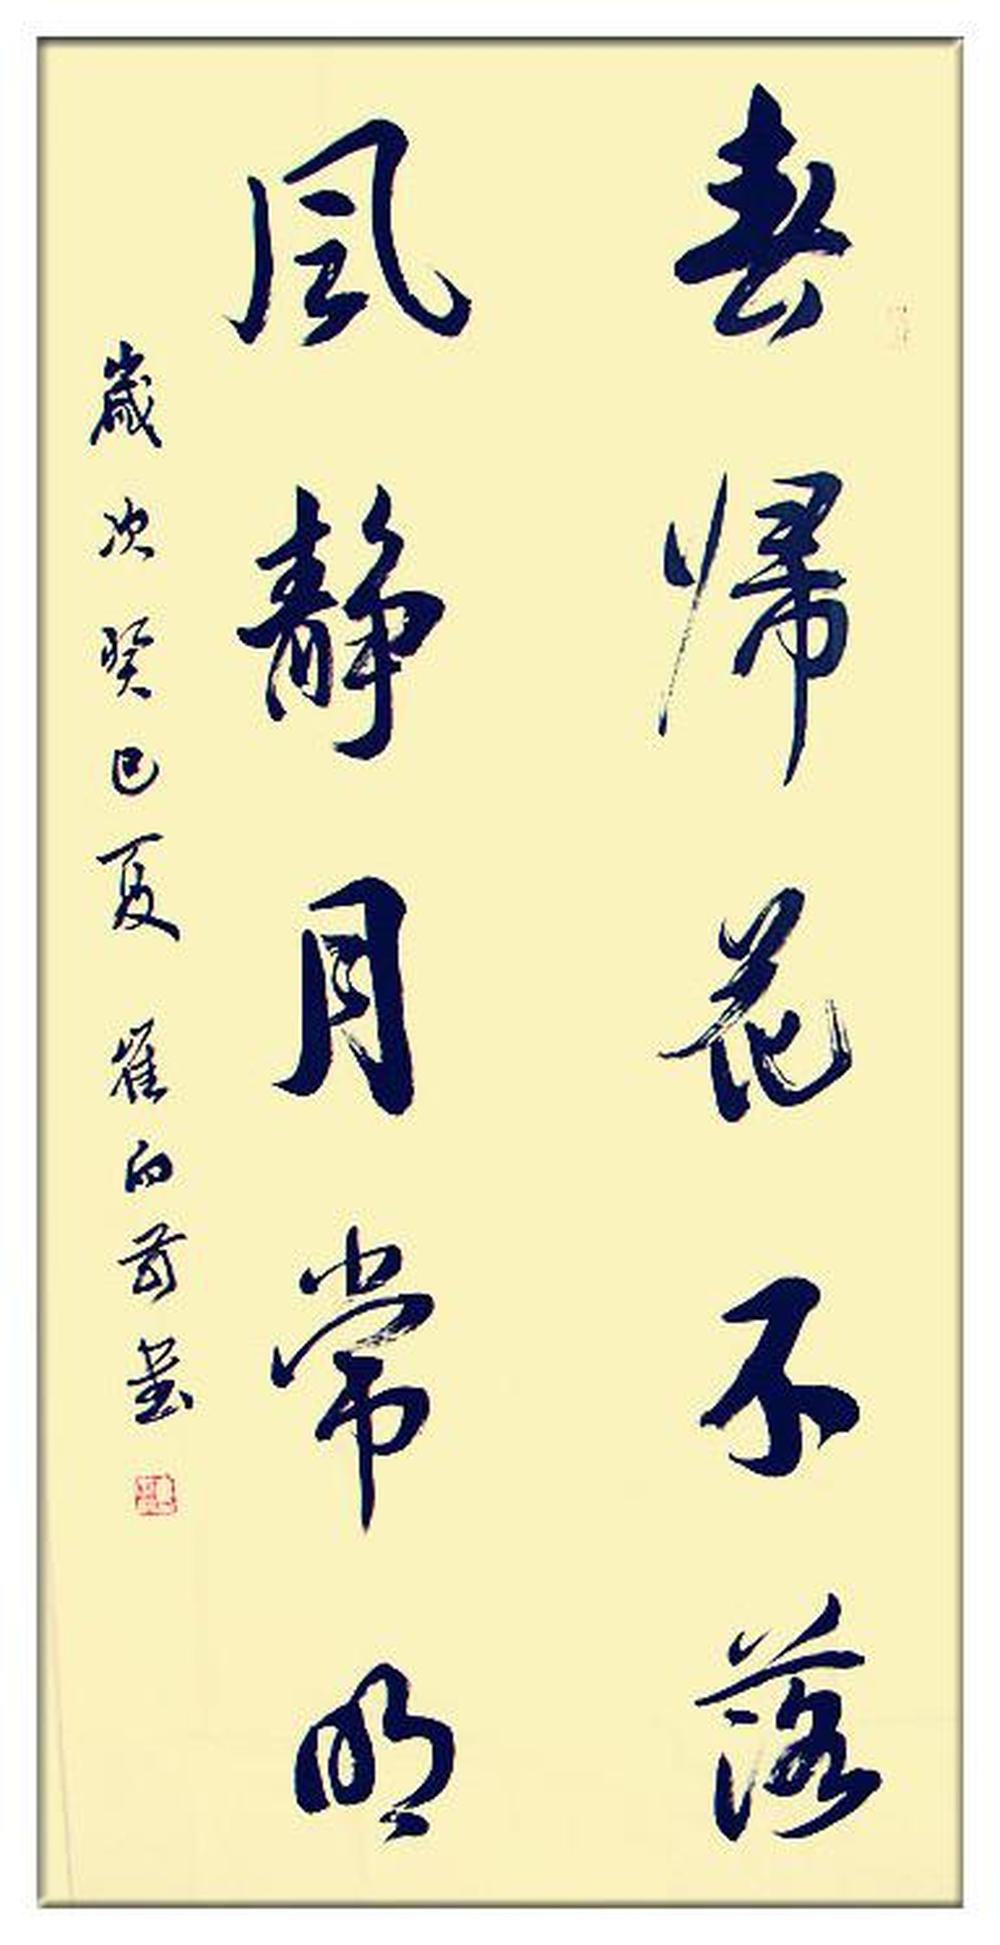 春歸花不落
風靜月常明
歲次癸巳夏 崔向前書